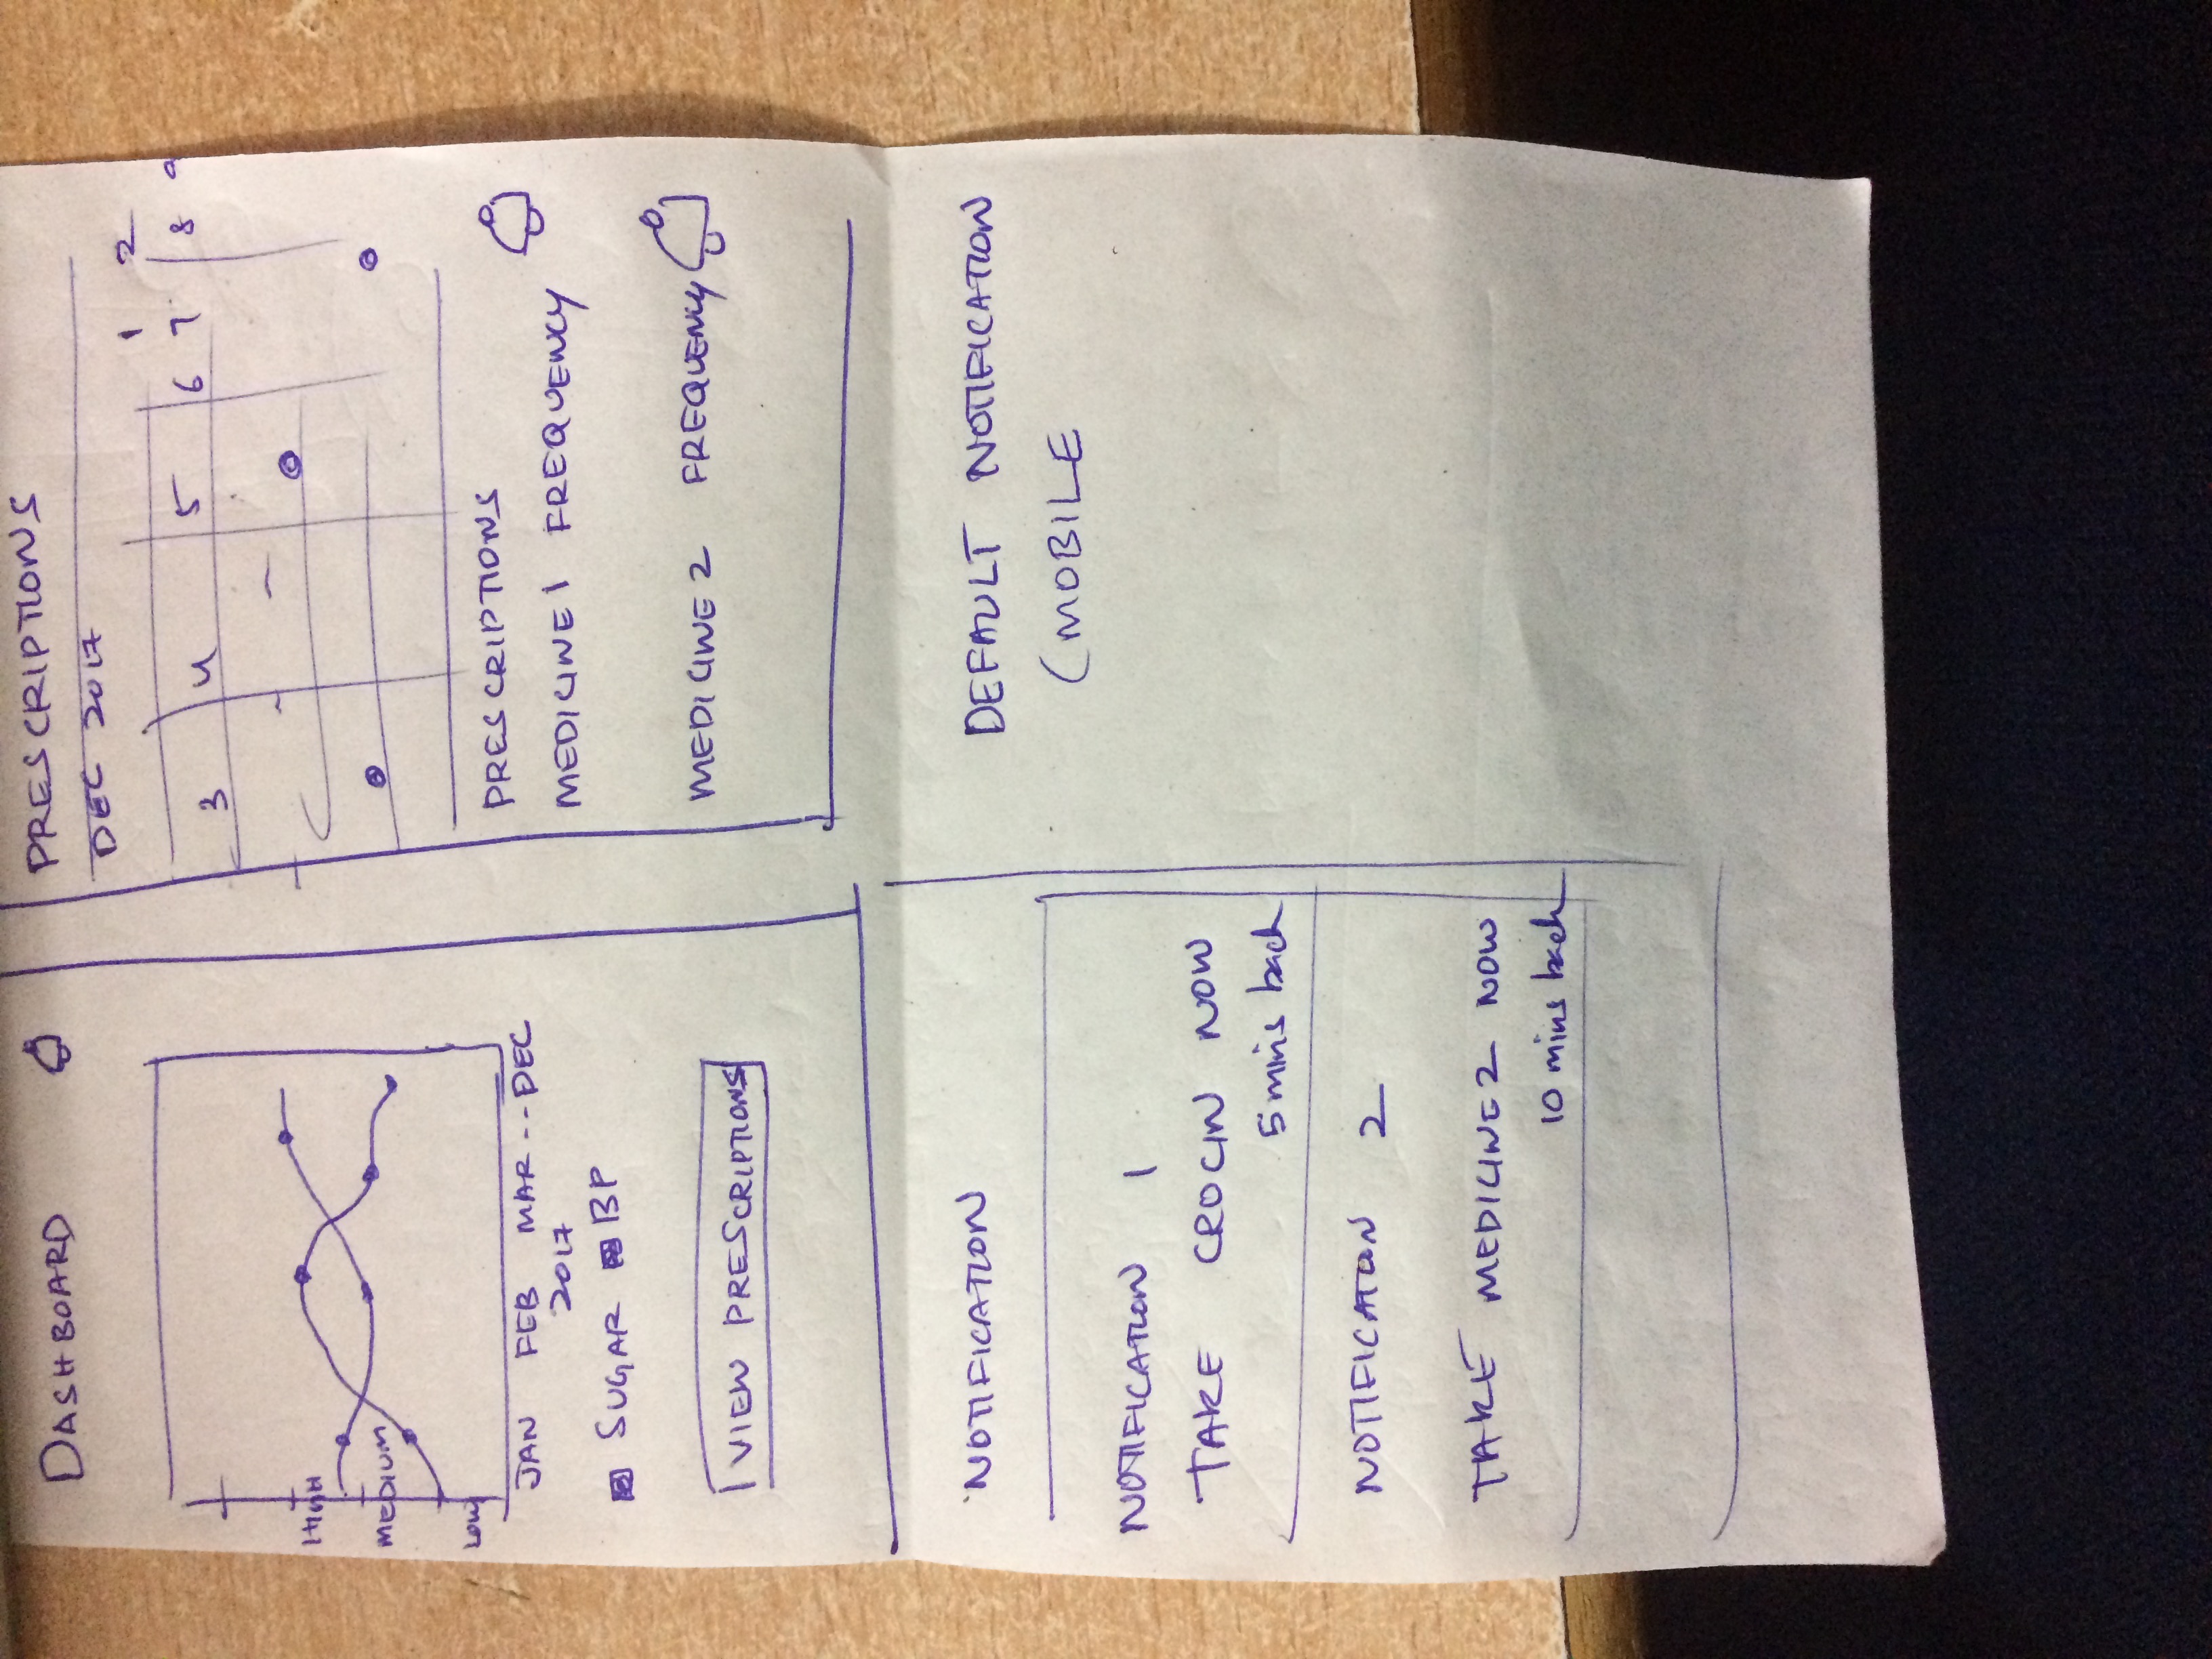 DASHBOARD
HIGH
MEDIUM
LOW
JAN FEB MAR -- DEC
2017
SUGAR BP
VIEW PRESCRIPTIONS
PRESCRIPTIONS
DEC 2017
1 2
3 4 5 6 7 8 9
PRESCRIPTIONS
MEDICINE 1 FREQUENCY
MEDICINE 2 FREQUENCY
NOTIFICATION
NOTIFICATION 1
TAKE CROCIN NOW
5 mins back
NOTIFICATION 2
TAKE MEDICINE 2 NOW
10 mins back
DEFAULT NOTIFICATION
(MOBILE